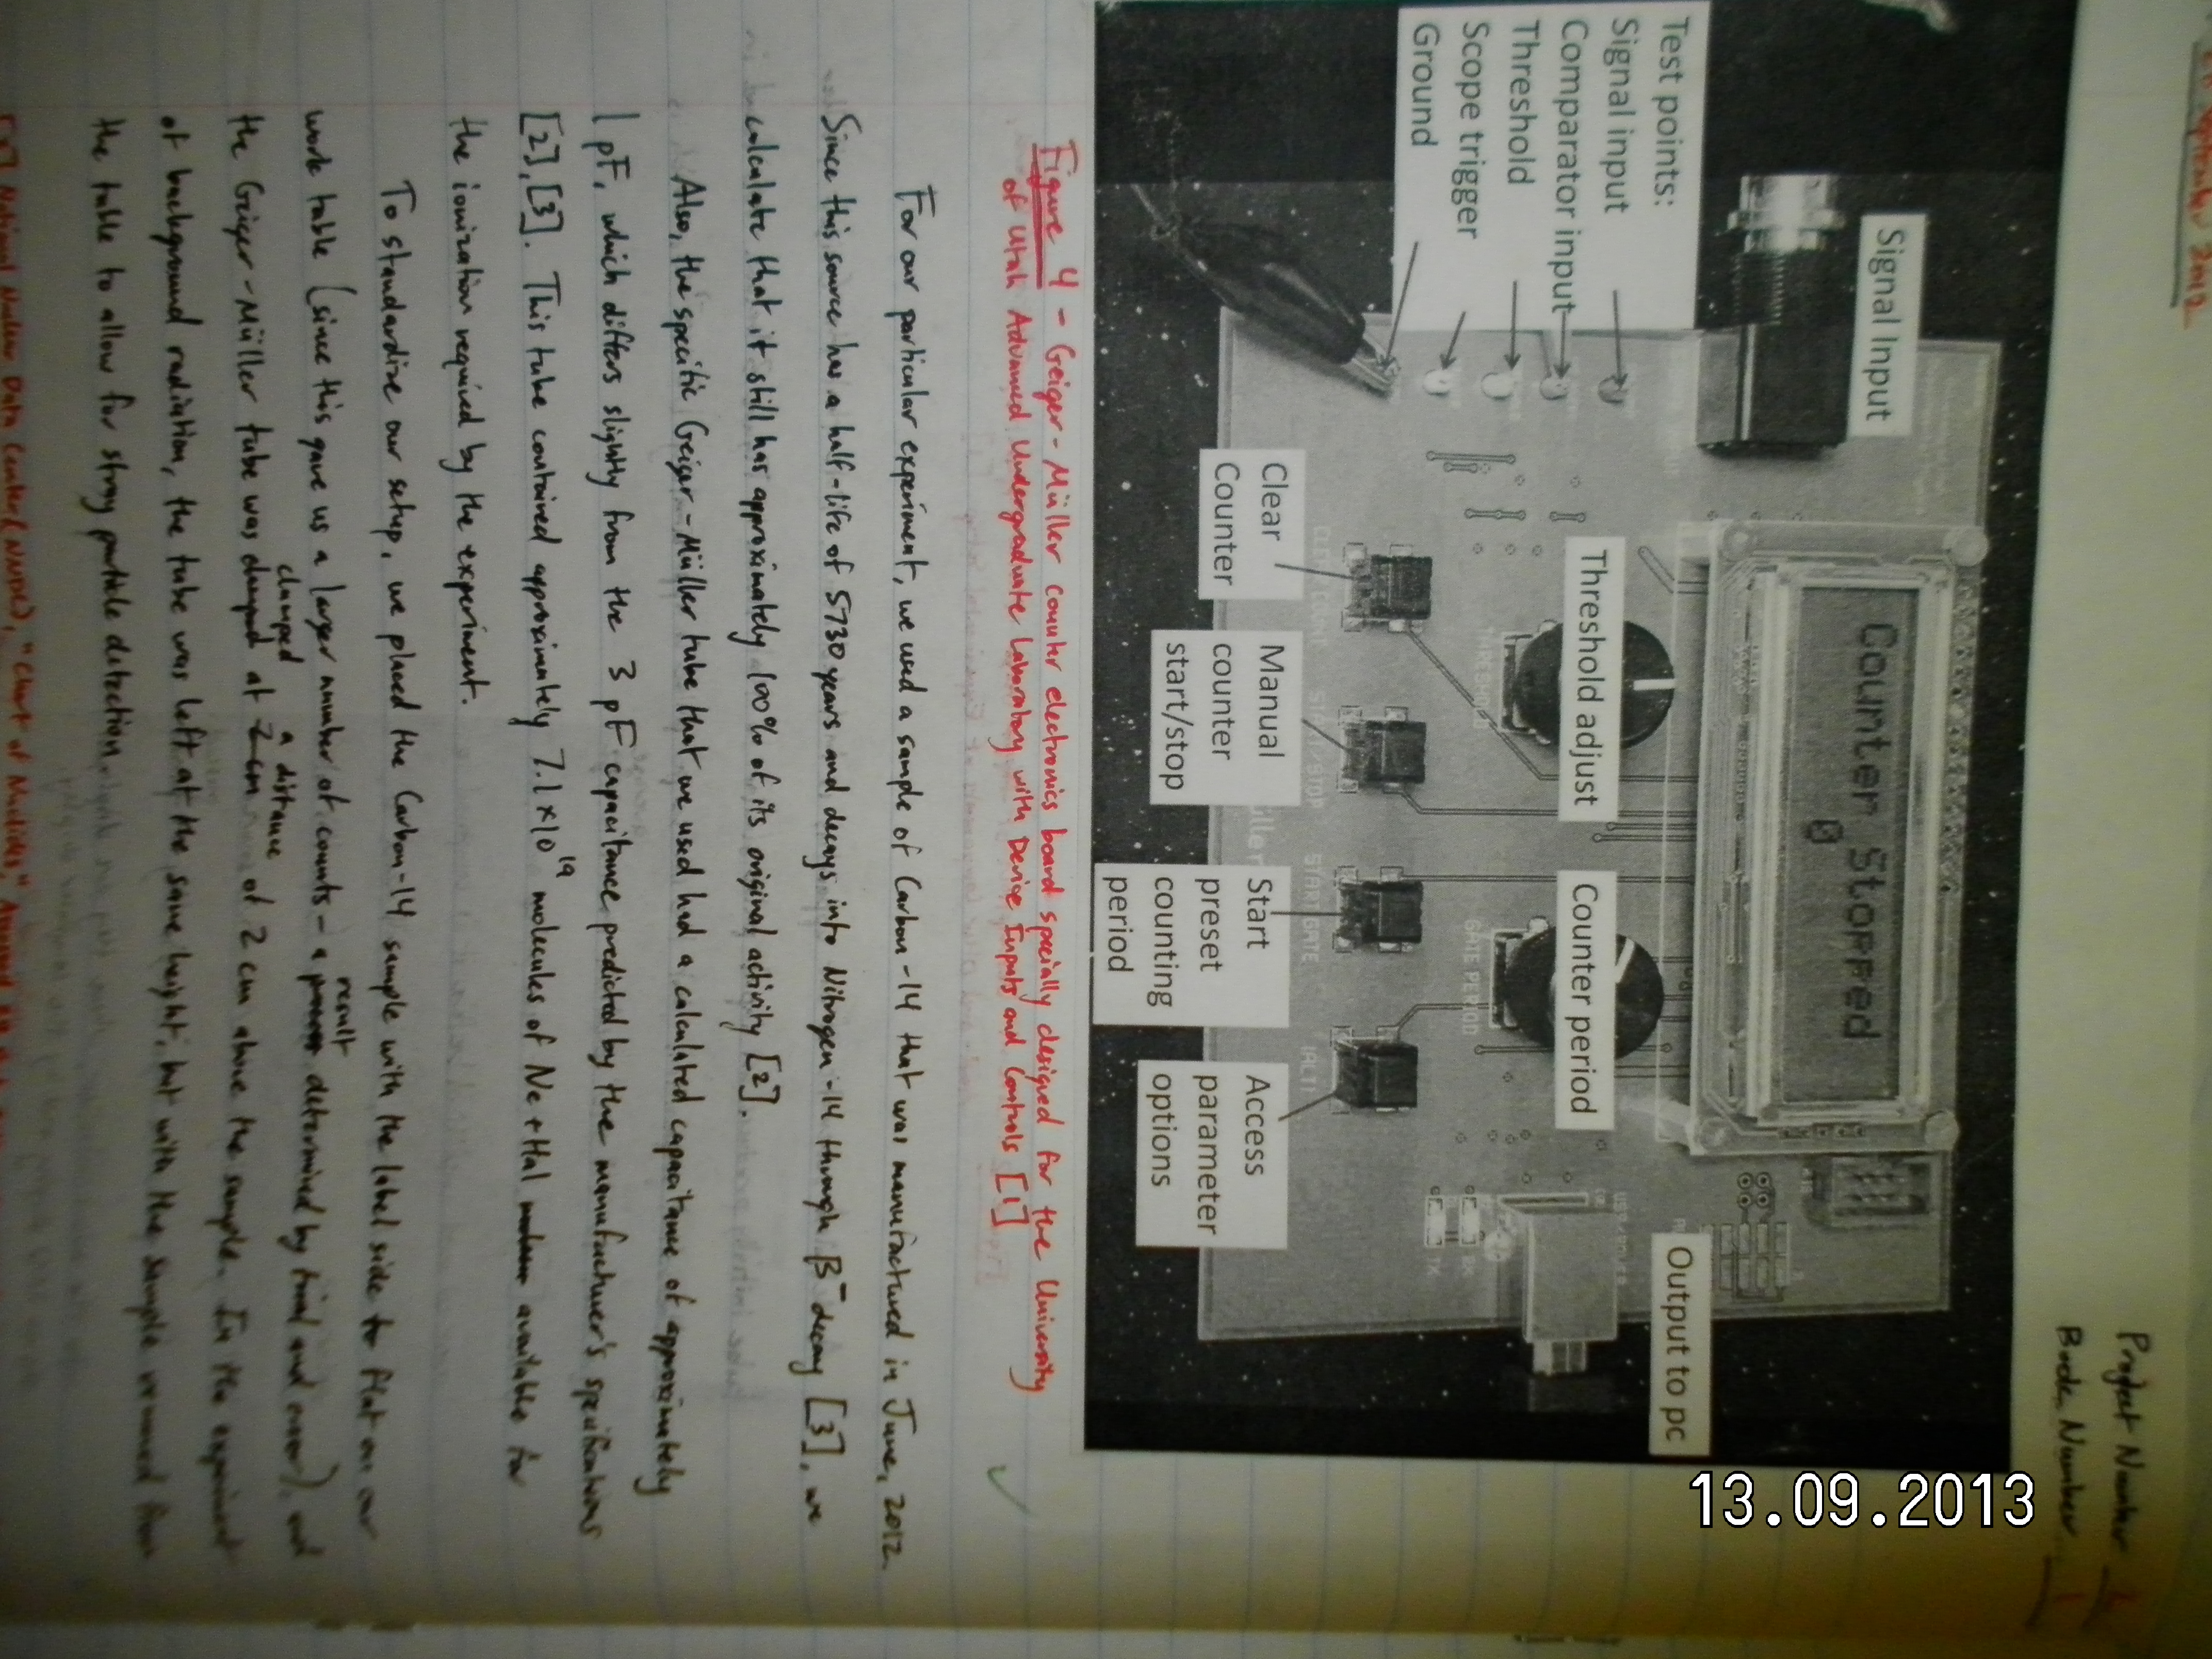 September 2012
Project Number
Book Number 1
Signal Input
Test points:
Signal input
Comparator input
Threshold
Scope trigger
Ground
Counter Stopped
0
Threshold adjust
Counter period
Output to pc
Clear
Counter
Manual
counter
start/stop
Start
preset
counting
period
Access
parameter
options
GATE PERIOD
START GATE
Figure 4 - Geiger-Müller counter electronics board specially designed for the University
of Utah Advanced Undergraduate Laboratory with Device Inputs and Controls [1]
For our particular experiment, we used a sample of Carbon-14 that was manufactured in June, 2012.
Since this source has a half-life of 5730 years and decays into Nitrogen-14 through β⁻ decay [3], we
calculate that it still has approximately 100% of its original activity [2].
Also, the specific Geiger-Müller tube that we used had a calculated capacitance of approximately
1 pF, which differs slightly from the 3 pF capacitance predicted by the manufacturer's specifications
[2],[3]. This tube contained approximately 7.1 × 10¹⁹ molecules of Ne + Hal available for
the ionization required by the experiment.
To standardize our setup, we placed the Carbon-14 sample with the label side to flat on our
work table (since this gave us a larger number of counts - a result determined by trial and error), and
the Geiger-Müller tube was clamped at a distance of 2 cm above the sample. In the experiment
of background radiation, the tube was left at the same height, but with the sample removed from
the table to allow for stray particle detection.
National Nuclear Data Center (NNDC), "Chart of Nuclides",
13.09.2013